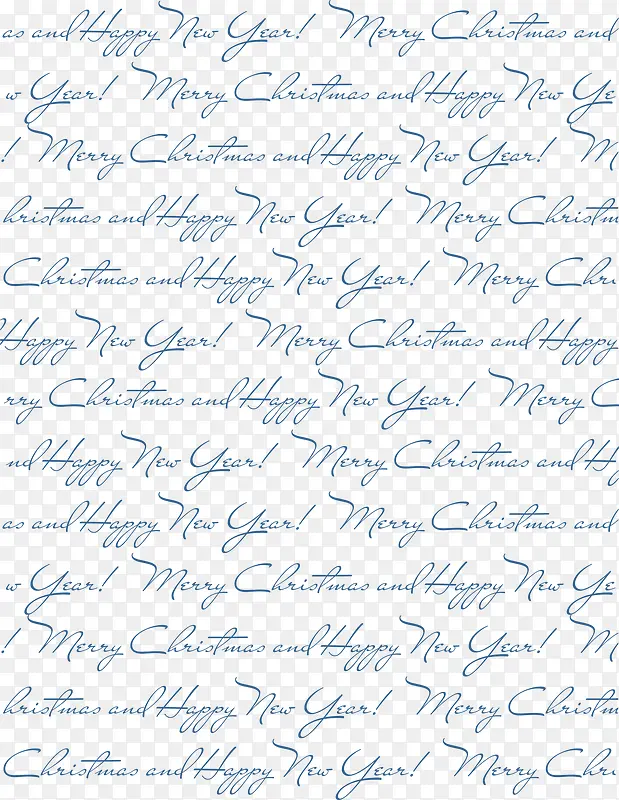 as and Happy New Year! Merry Christmas and
w Year! Merry Christmas and Happy New Ye
! Merry Christmas and Happy New Year! M
hristmas and Happy New Year! Merry Christm
Christmas and Happy New Year! Merry Chri
Happy New Year! Merry Christmas and Happy
rry Christmas and Happy New Year! Merry C
nd Happy New Year! Merry Christmas and H
as and Happy New Year! Merry Christmas and
w Year! Merry Christmas and Happy New Ye
! Merry Christmas and Happy New Year! M
hristmas and Happy New Year! Merry Christm
Christmas and Happy New Year! Merry Chri